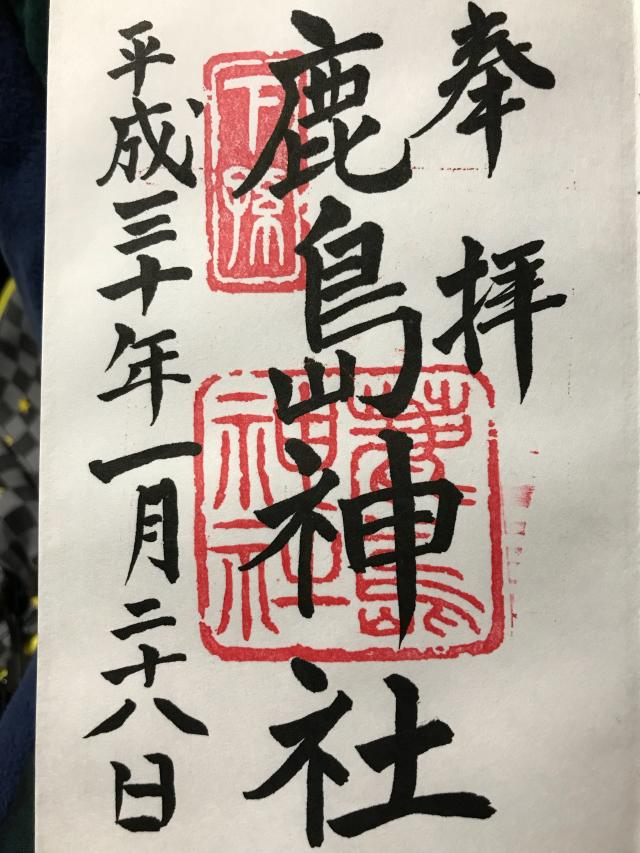 奉拝
鹿島神社
平成三十年一月二十八日
下孫
鹿島神社